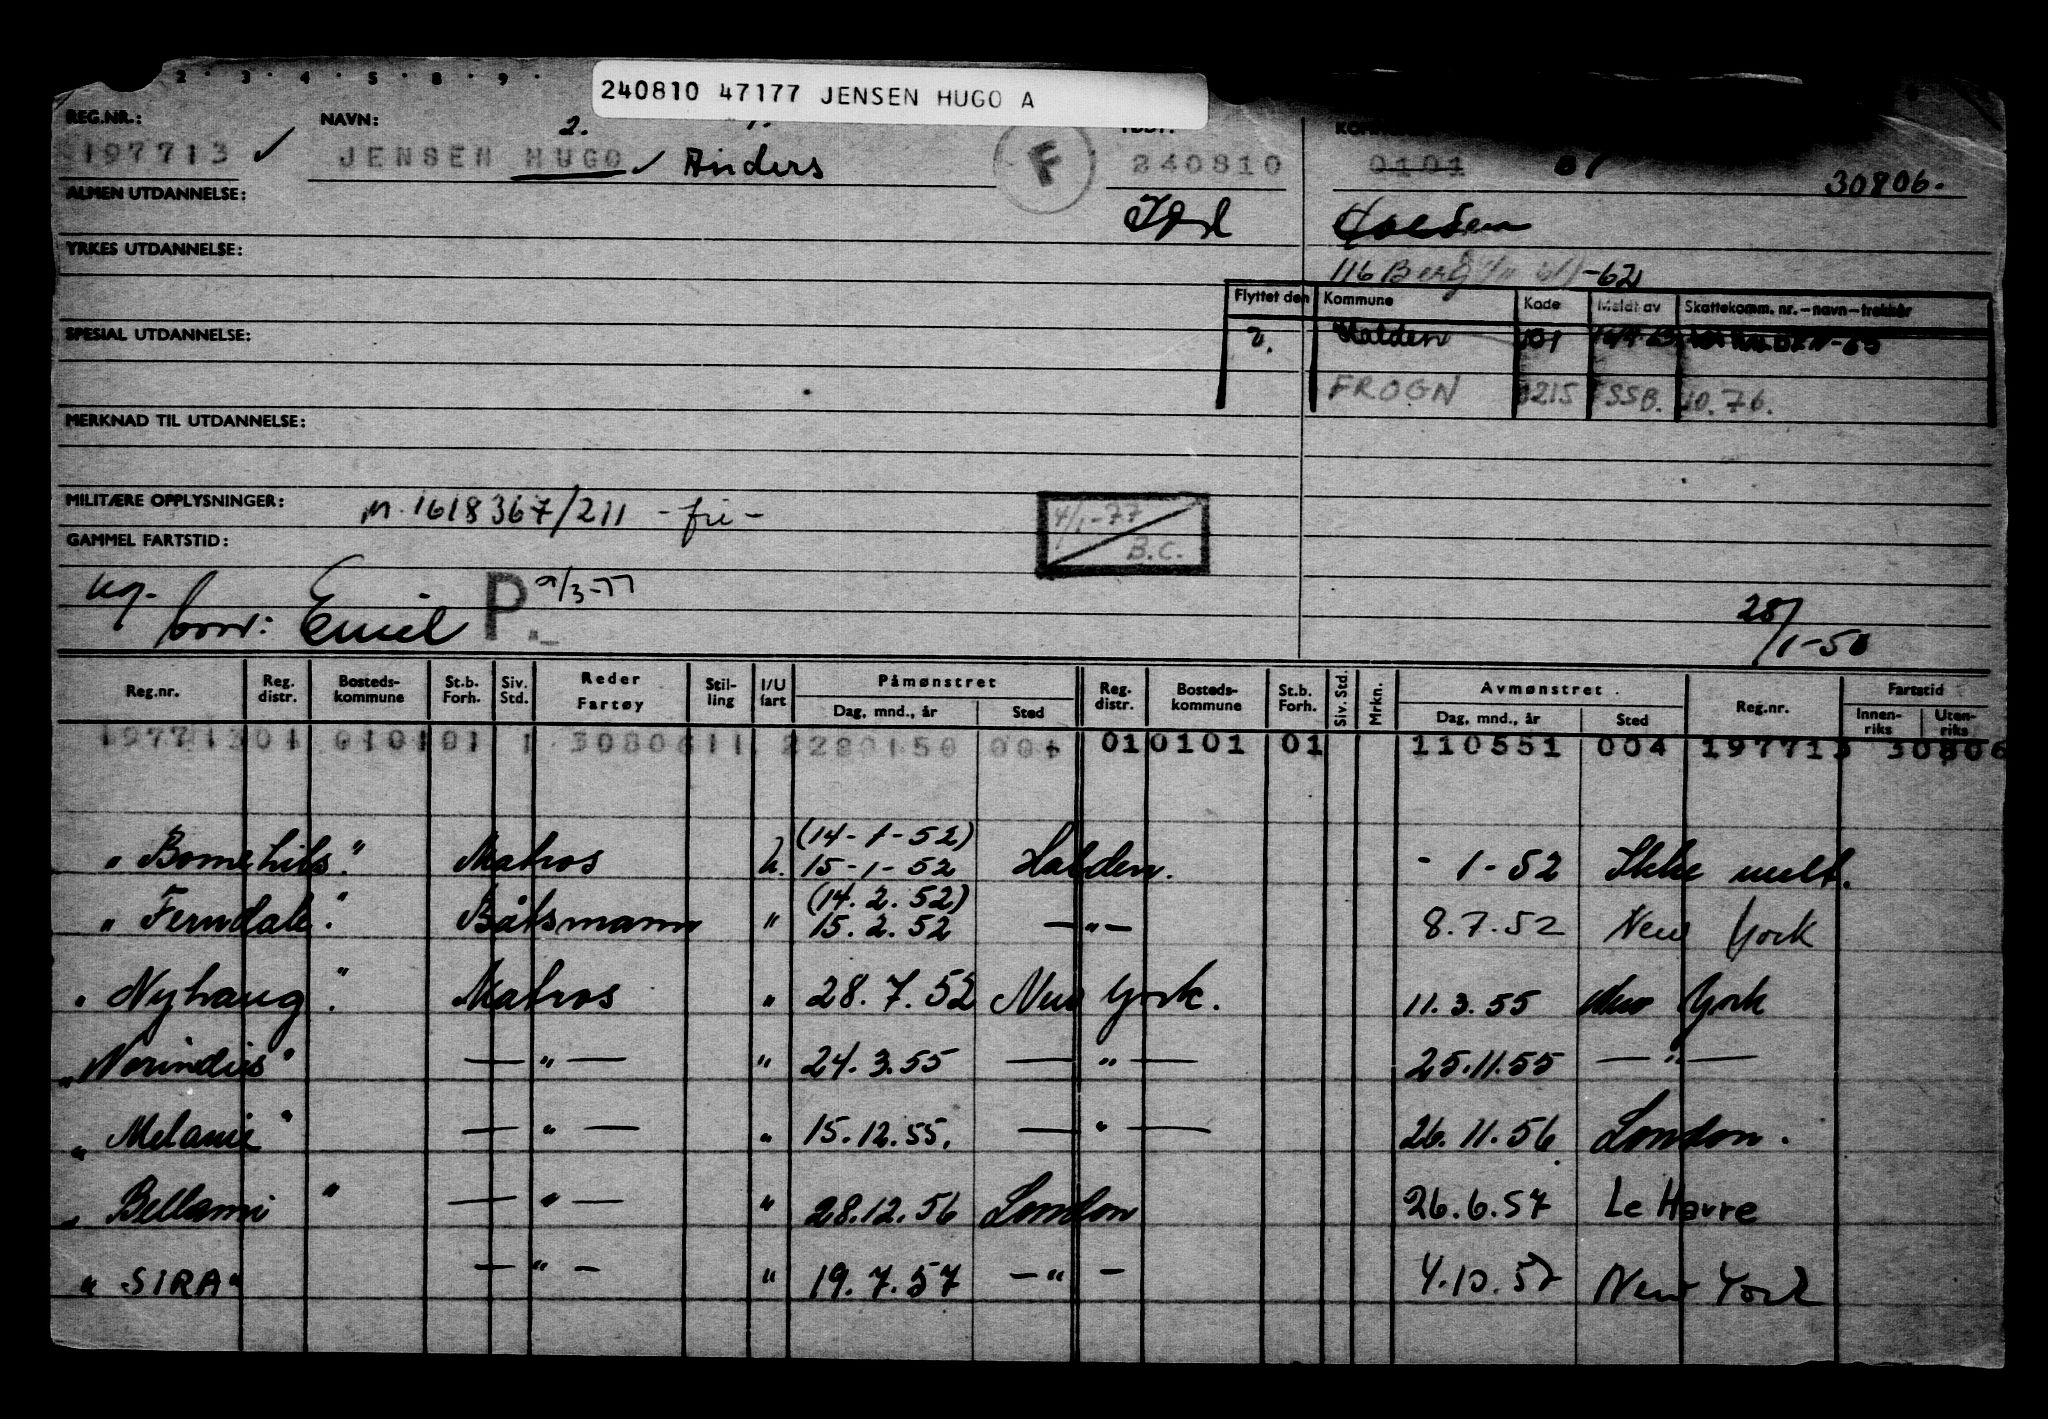 240810 47177 JENSEN HUGO A
2 · 3 · 4 · 5 · 8 · 9 ·
REG.NR.: NAVN: 2. 1.
197713 ✓ JENSEN HUGO ✓ Anders F 240810 0101 01 30806.
ALMEN UTDANNELSE:
YRKES UTDANNELSE:
116 Berg -62
Flyttet den Kommune Kode Meldt av Skattekomm. nr. – navn – trekkår
SPESIAL UTDANNELSE: 2. Halden 101
FROGN 0215 SSB. 10.76.
MERKNAD TIL UTDANNELSE:
MILITÆRE OPPLYSNINGER: M. 1618367/211 - fri - 4/1-77
B.C.
GAMMEL FARTSTID:
ug. P 9/3-77
borv: Emil 28/1-50
Reg.nr. Reg. distr. Bosteds-kommune St.b. Forh. Siv. Std. Reder Fartøy Stil-ling I/U fart Påmønstret Dag, mnd., år Sted Reg. distr. Bosteds-kommune St.b. Forh. Siv. Std. Mrkn. Avmønstret Dag, mnd., år Sted Reg.nr. Fartstid Innen-riks Uten-riks
197713 01 0101 01 1 30806 11 2 280150 004 01 0101 01 110551 004 197713 30806
(14-1-52)
" Bomehils " Matros u. 15-1-52 Halden. - 1-52 Ikke meld.
(14.2.52)
" Ferndale " Båtsmann " 15.2.52 — " — 8.7.52 New York
" Nyhaug " Matros " 28.7.52 New York. 11.3.55 New York
" Norindies " — " — " 24.3.55 — " — 25.11.55 — " —
" Melanie " — " — " 15.12.55. — " — 26.11.56 London.
" Bellami " — " — " 28.12.56 London 26.6.57 Le Havre
" SIRA " — " — " 19.7.57 — " — 4.10.57 New York